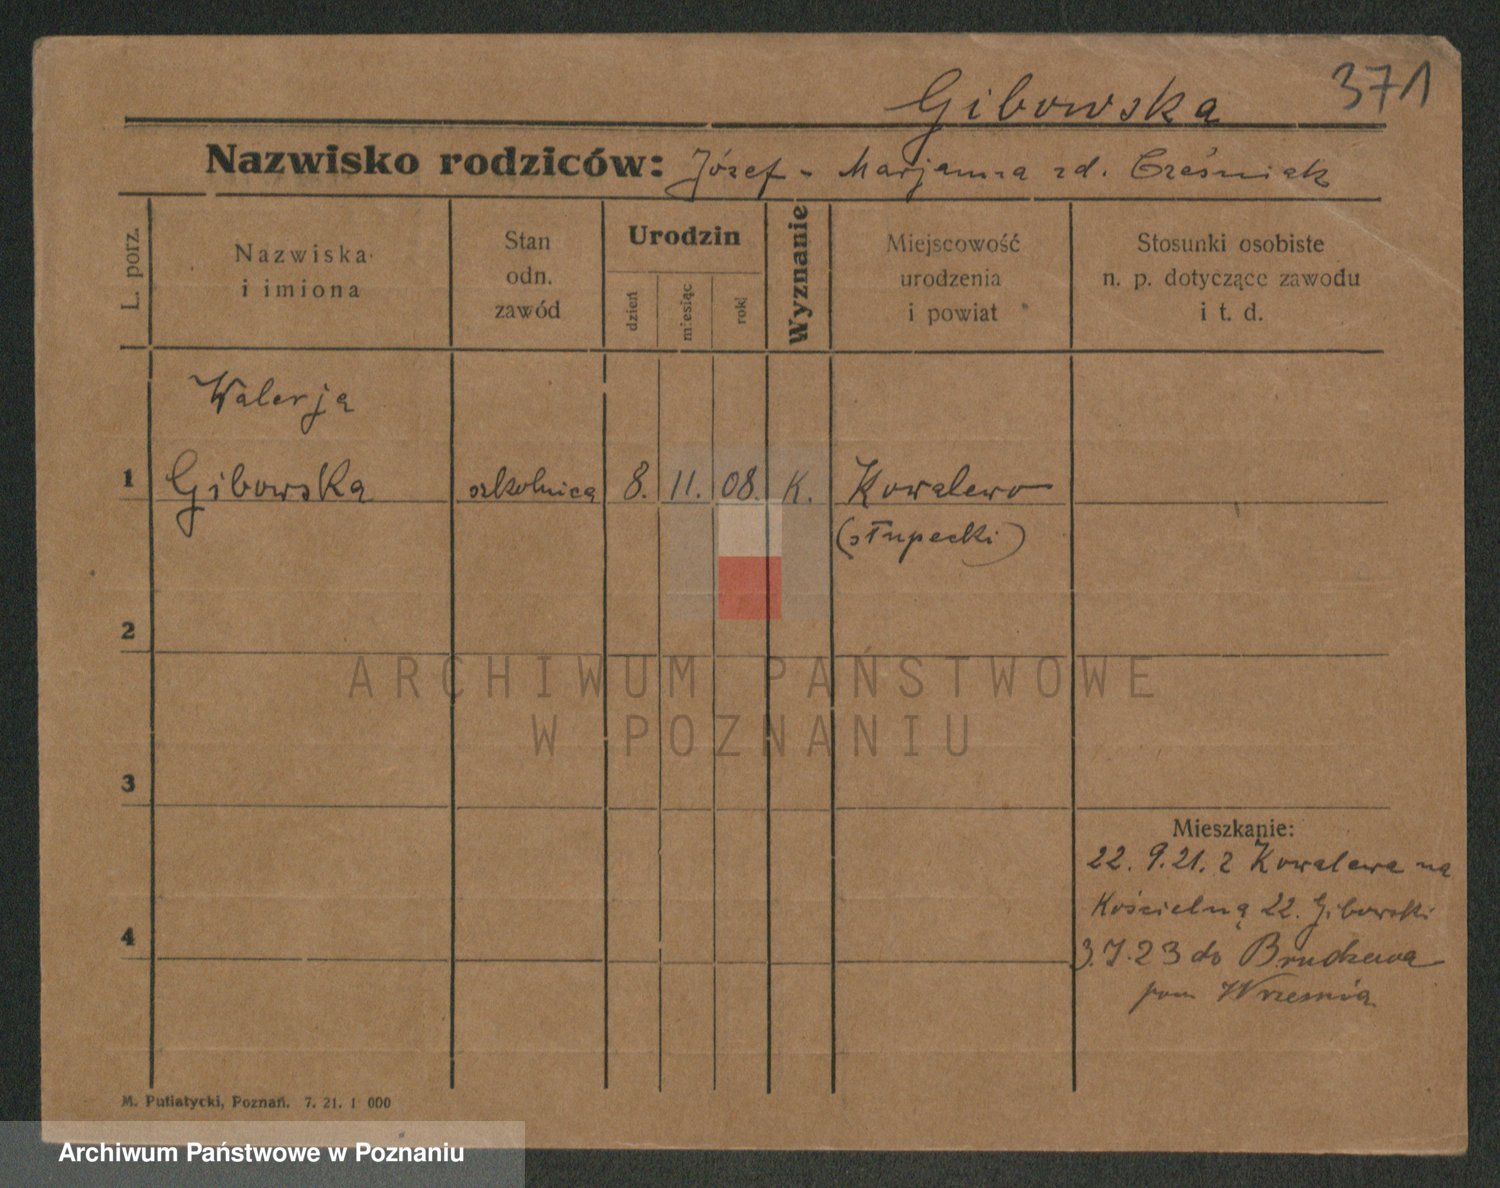 Gibowska 371
Nazwisko rodziców: Józef - Marjanna zd. Cześniak
L. porz.
Nazwiska
i imiona
Stan
odn.
zawód
Urodzin
dzień
miesiąc
rok
Wyznanie
Miejscowość
urodzenia
i powiat
Stosunki osobiste
n. p. dotyczące zawodu
i t. d.
Walerja
1 Gibowska szkolnica 8. 11. 08. K. Kowalewo
(słupecki)
2
ARCHIWUM PAŃSTWOWE
W POZNANIU
3
Mieszkanie:
22. 9. 21. z Kowalewa na
Kościelną 22. Gibowski
4
3.7.23 do
pow Wrzesnia
M. Putiatycki, Poznań. 7. 21. 1 000
Archiwum Państwowe w Poznaniu